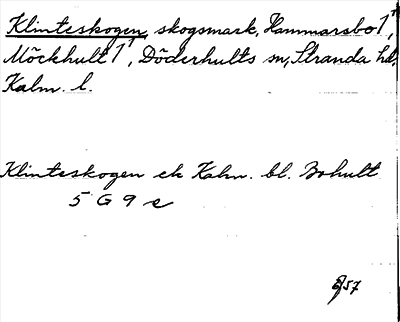 Klinteskogen, skogsmark, Hammarsbo 1¹,
Möckhult 1¹, Döderhults sn, Stranda hd,
Kalm. l.
Klinteskogen ek Kalm. bl. Bohult
5 G 9 e
57